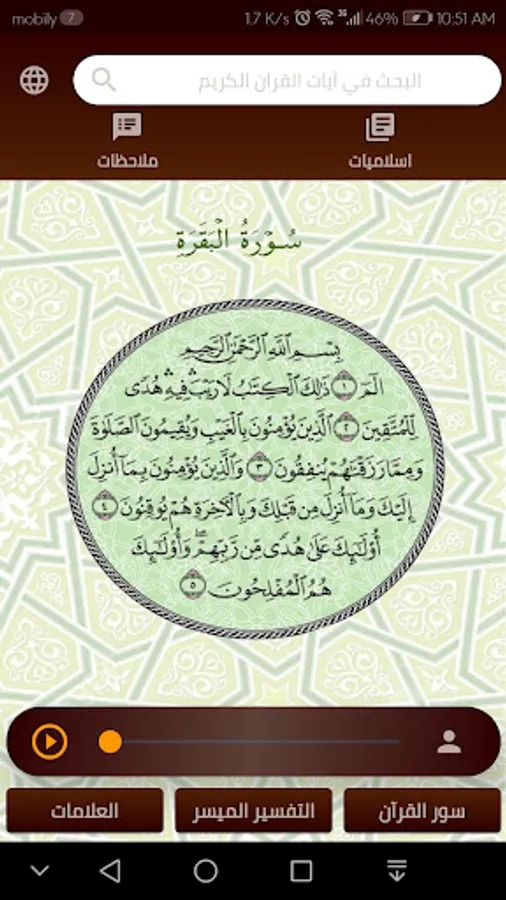 mobily 7 1.7 K/s 3G 46% 10:51 AM
البحث في آيات القرآن الكريم
ملاحظات اسلاميات
سُورَةُ الْبَقَرَةِ
بِسْمِ ٱللَّهِ ٱلرَّحْمَٰنِ ٱلرَّحِيمِ
الٓمٓ ١ ذَٰلِكَ ٱلْكِتَٰبُ لَا رَيْبَ ۛ فِيهِ ۛ هُدًى
لِّلْمُتَّقِينَ ٢ ٱلَّذِينَ يُؤْمِنُونَ بِٱلْغَيْبِ وَيُقِيمُونَ ٱلصَّلَوٰةَ
وَمِمَّا رَزَقْنَٰهُمْ يُنفِقُونَ ٣ وَٱلَّذِينَ يُؤْمِنُونَ بِمَآ أُنزِلَ
إِلَيْكَ وَمَآ أُنزِلَ مِن قَبْلِكَ وَبِٱلْءَاخِرَةِ هُمْ يُوقِنُونَ ٤
أُو۟لَٰٓئِكَ عَلَىٰ هُدًى مِّن رَّبِّهِمْ ۖ وَأُو۟لَٰٓئِكَ
هُمُ ٱلْمُفْلِحُونَ ٥
سور القرآن التفسير الميسر العلامات